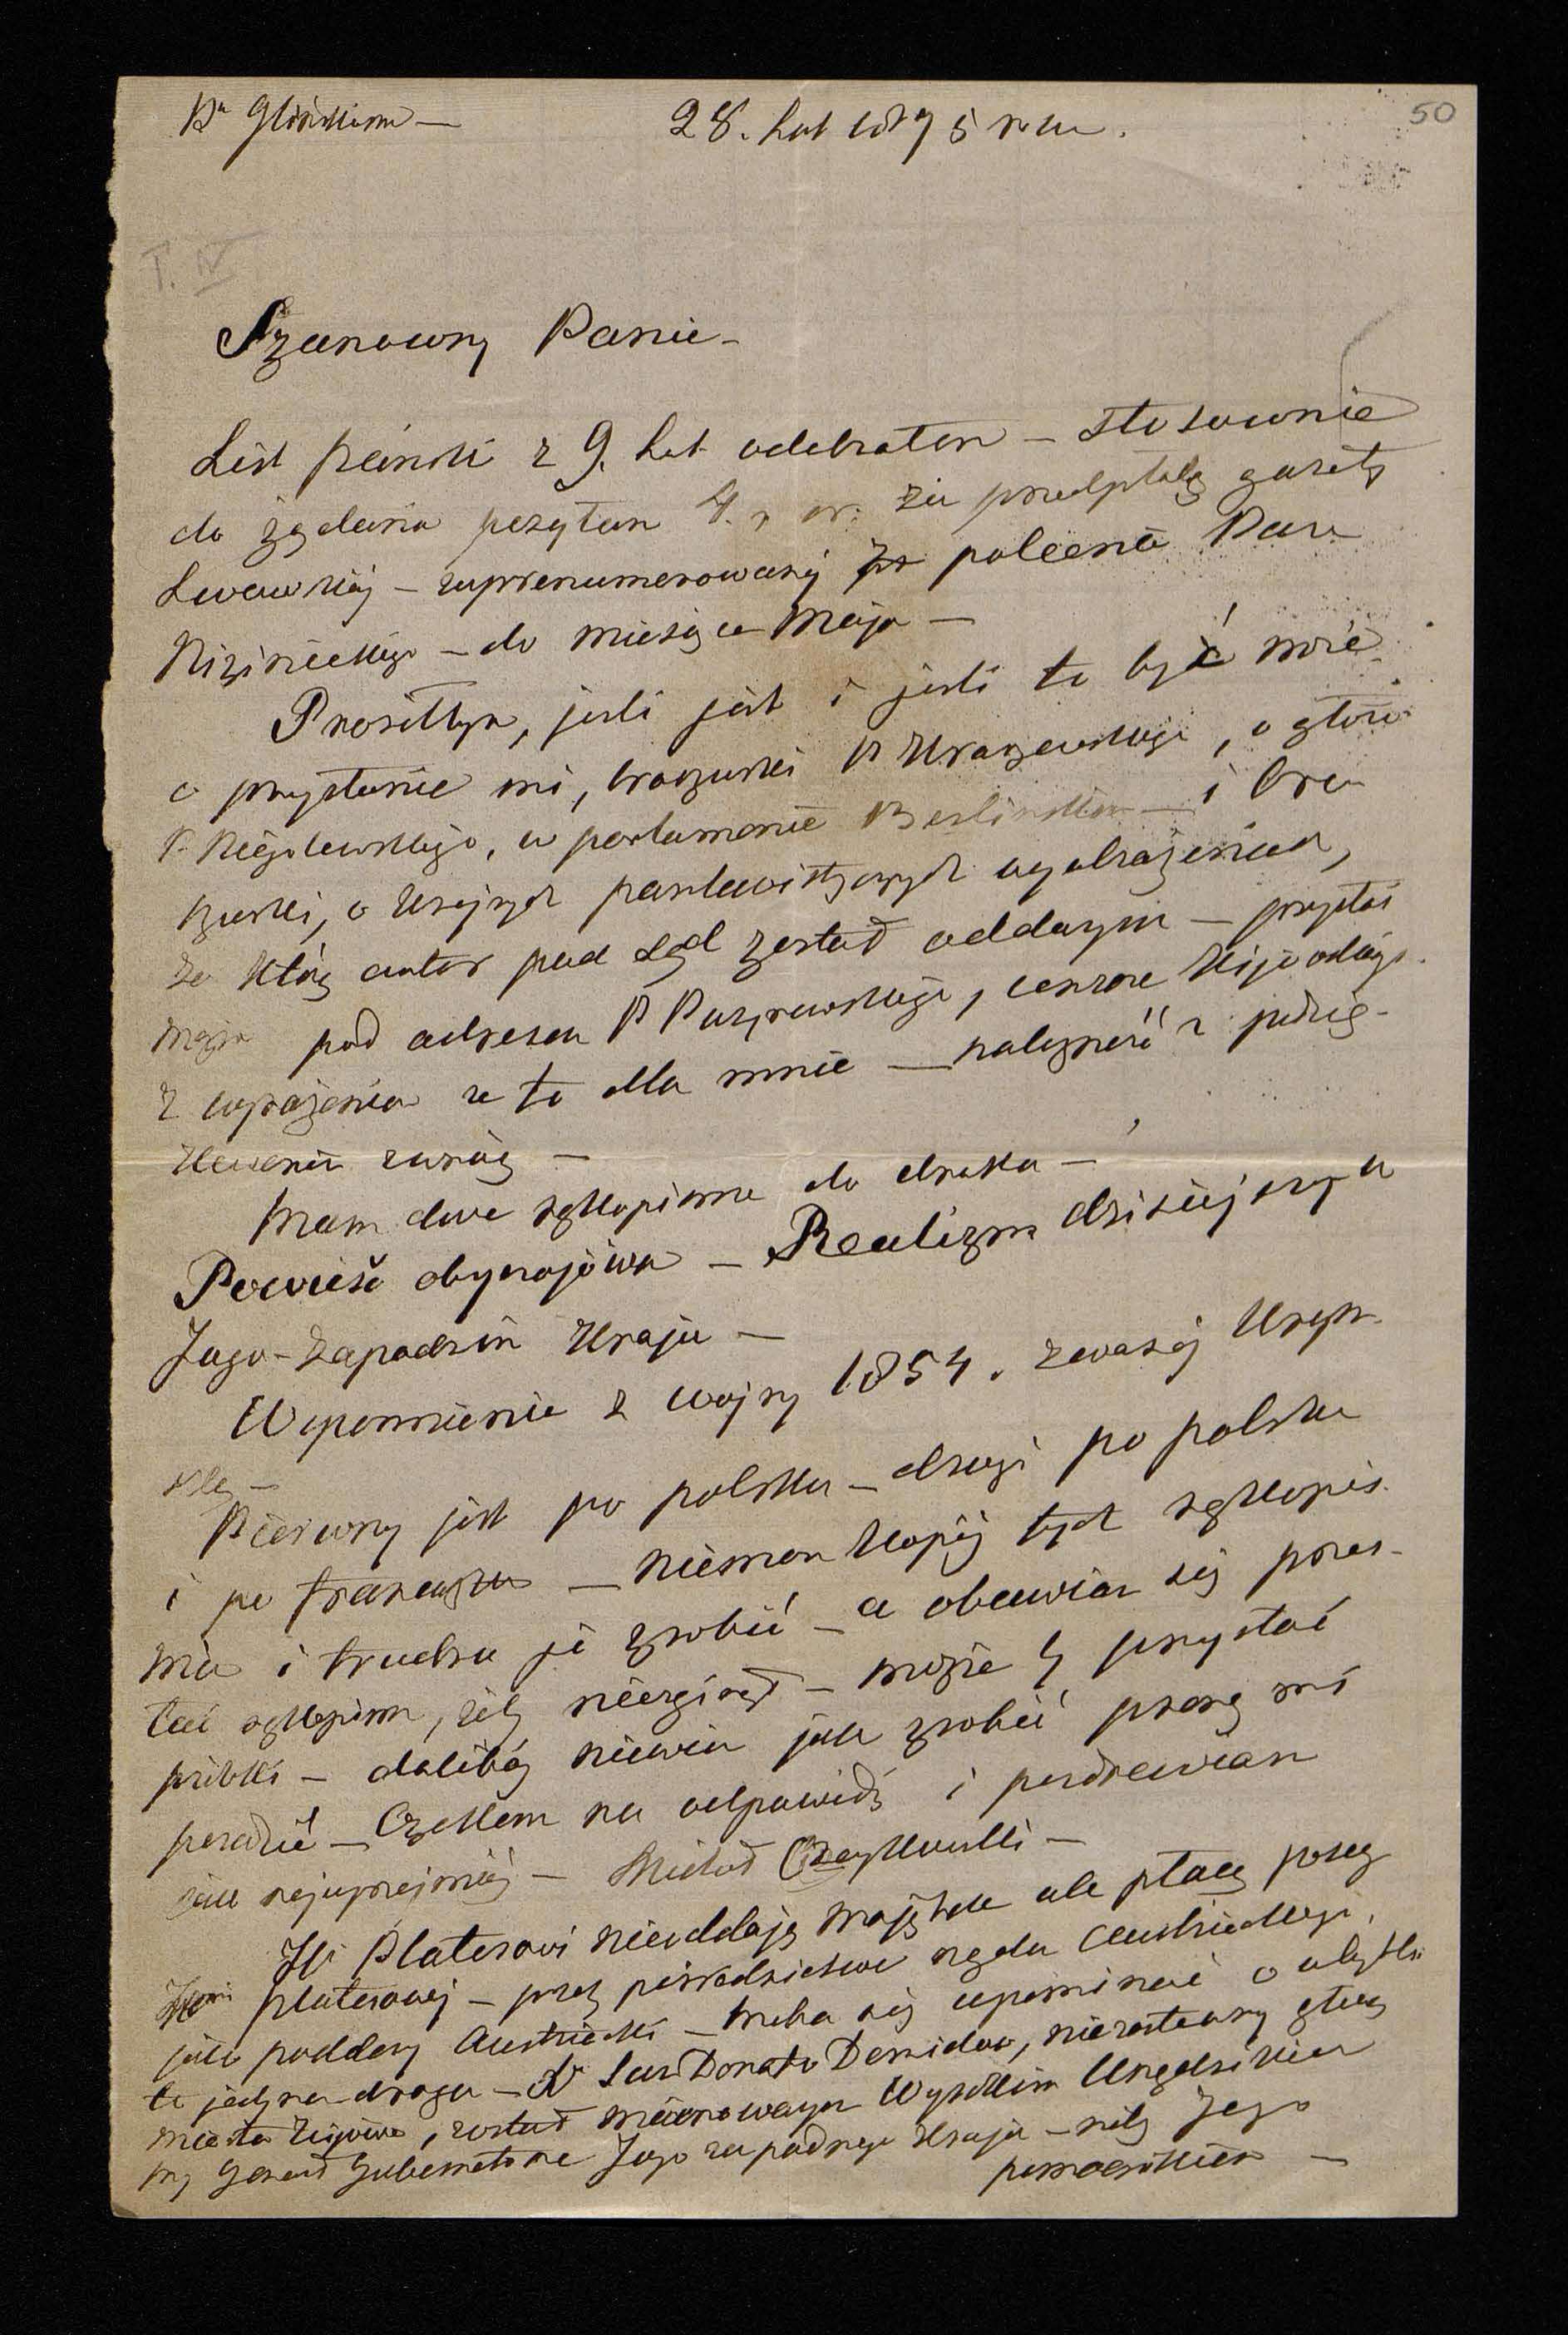 50
28. Lut 1879 5 roku.
T. IV
Szanowny Panie -
List pański z 9. Lut odebrałem - stosownie
do żądania posyłam 4. r za przedpłatę gazety
Lwowskiej - zaprenumerowanej polecenia Pana
Nizinieckiego - do miesiąca Maja -
Prosiłbym, jeśli jest i jeśli to być może
o przysłanie mi, broszurki P Kraszewskiego, o głosie
P. Niegolewskiego, w parlamencie Berlinskim - i bro
szurki, o panslawistycznych wyobrażeniach,
za którą autor pod sąd został oddanym - przysłać
można pod adresem P Puzyrewskiego, cenzora Kijowskiego
z wyrażeniem że to dla mnie - należność z podzię-
kowaniem zwrócę -
Mam dwa rękopisma do druku -
Powieść obyczajowa - Realizm dzisiejszych
Jugo-Zapadnim Kraju -
Wspomnienie z wojny 1854. zwanej Krym
ską -
Pierwszy jest po polsku - drugi po polsku
i po francuzku - niemam kopij tych rękopis
mów i trudno je zrobić - a obawiam się przes-
łać rękopism, żeby niezginął - może by przysłać
próbki - dalibóg niewiem jak zrobić proszę mi
poradzić - Czekam na odpowiedź i pozdrawiam
jak najuprzejmiej - Michał Czaykowski -
Platerowi nieoddają majątku ale płacą
Platerowej - przez pośrednictwo rządu Austriackiego,
jako poddany Austriacki - trzeba się upominać o
to jedyna droga - San Donato Demidow, niezostawszy głową
miasta Kijowa, został mianowanym Wysokim Urzędnikiem
przy Generał Gubernatorze Jugo zapadnego Kraju - niby Jego
pomocnikiem -